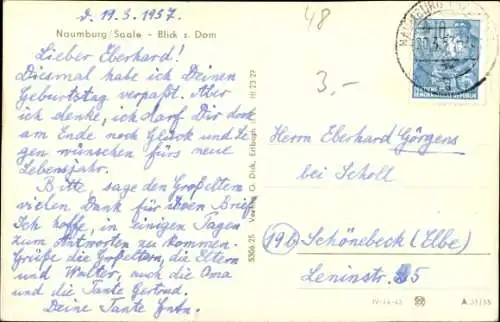 d. 19.3.1957.
Naumburg/Saale - Blick z. Dom
Lieber Eberhard!
Diesmal habe ich Deinen
Geburtstag verpaßt. Aber
ich denke, ich darf Dir doch
am Ende noch Glück und Se-
gen wünschen fürs neue
Lebensjahr.
Bitte, sage den Großeltern
vielen Dank für Ihren Brief.
Ich hoffe, in einigen Tagen
zum Antworten zu kommen.
Grüße die Großeltern, die Eltern
und Walter, auch die Oma
und die Tante Gertrud.
Deine Tante
48
3,-
Herrn Eberhard Görgens
bei Scholl
19b Schönebeck (Elbe)
Leninstr. 35
5306 25 Verlag G. Dick, Erlbach i. V. III 23 29
IV-14-45
A 31/55